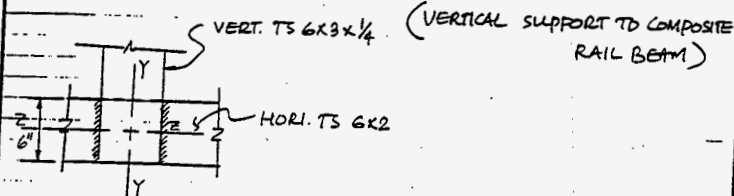 VERT. TS 6x3x1/4 (VERTICAL SUPPORT TO COMPOSITE
RAIL BEAM)
Y
HORI. TS 6x2
Z Z Z
6"
Y